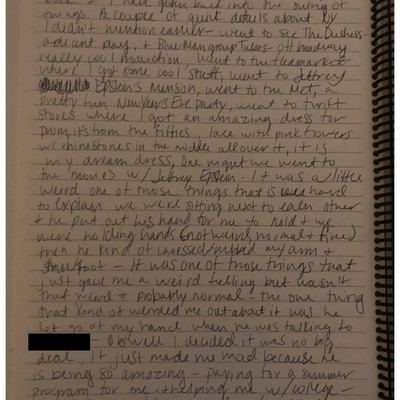 back & I had gotten back into the swing of
things. A couple of quick details about NY
I didn't mention earlier - went to see The Duchess -
a decent play, & Blue Man group Tubes - off broadway
really cool production, went to the fleamarket
where I got some cool stuff, went to Jeffrey
Epstein's Mansion, went to the Met, a
pretty fun New Years Eve party, went to thrift
stores where I got an amazing dress for
prom, its from the fifties, lace with pink flowers
w/ rhinestones in the middle all over it, it is
my dream dress, One night we went to
the movies w/ Jeffrey Epstein - It was a little
weird one of those things that is hard
to explain we were sitting next to each other
& he put out his hand for me to hold & we
were holding hands (not weird, normal & fine)
then he kind of caressed/rubbed my arm &
foot - It was one of those things that
just gave me a weird felling but wasn't
that weird & probably normal - the one thing
that kind of weirded me out about it was he
let go of my hand when he was talking to
- Oh well I decided it was no big
deal, It just made me mad because he
is being so amazing - paying for a summer
program for me - & helping me w/ college -